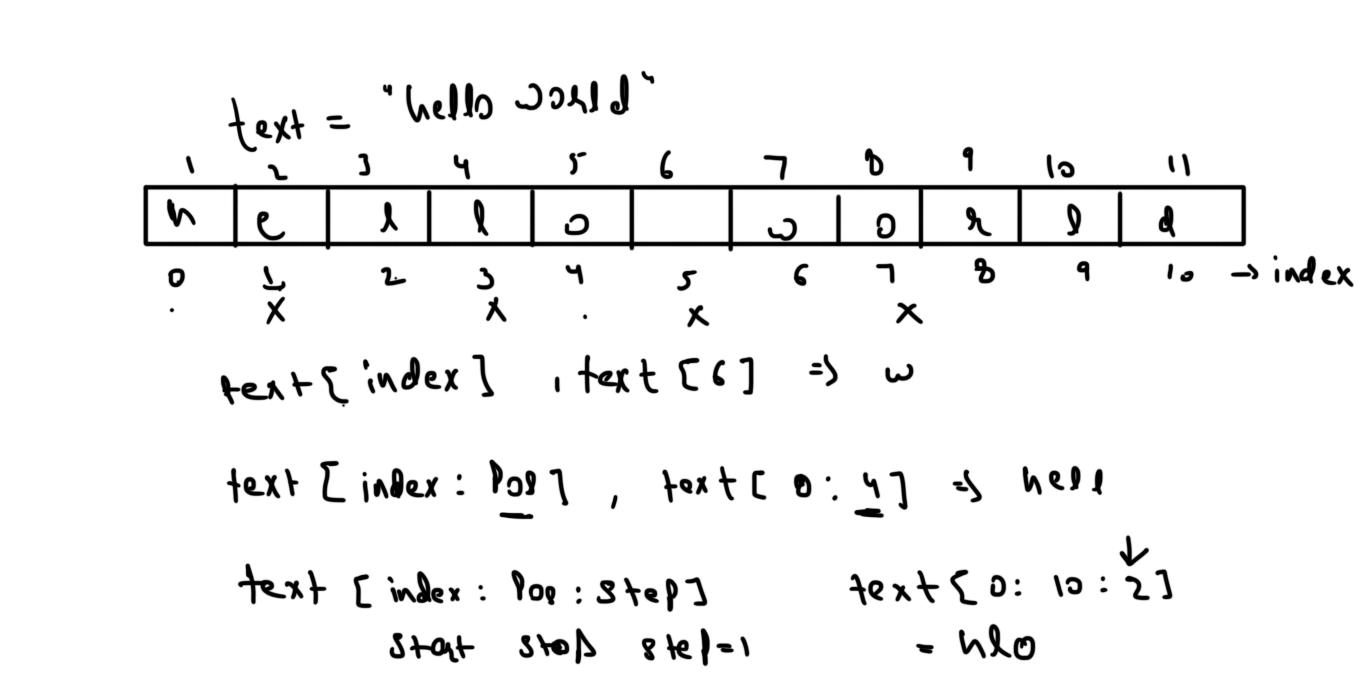 text = "hello world"
1 2 3 4 5 6 7 8 9 10 11
h e l l o w o r l d
0 1 2 3 4 5 6 7 8 9 10 → index
x x x x
text[index] , text[6] => w
text[index: Pos] , text[0:4] => hell
text[index: Pos: step] text[0: 10: 2]
start stop step=1 = hlo